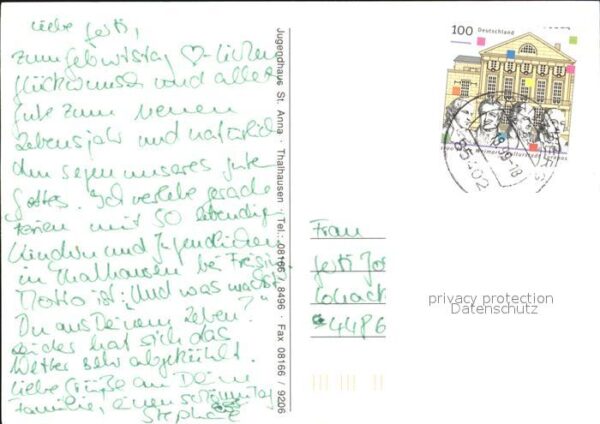 Liebe Gesti,
zum Geburtstag ♡-lichen
Glückwunsch und alles
Gute zum neuen
Lebensjahr und natürlich
den Segen unseres guten
Gottes. Ich verlebe gerade
Ferien mit 50 lebendigen
Kindern und Jugendlichen
in Thalhausen bei Freising
Motto ist: "Und was machst
Du aus Deinem Leben?"
Leider hat sich das
Wetter sehr abgekühlt.
Liebe Grüße an Deine
Familie, einen schönen Tag,
Jugendhaus St. Anna · Thalhausen · Tel.: 08166 / 8496 · Fax 08166 / 9206
100 Deutschland
85402
Frau
4486
privacy protection
Datenschutz